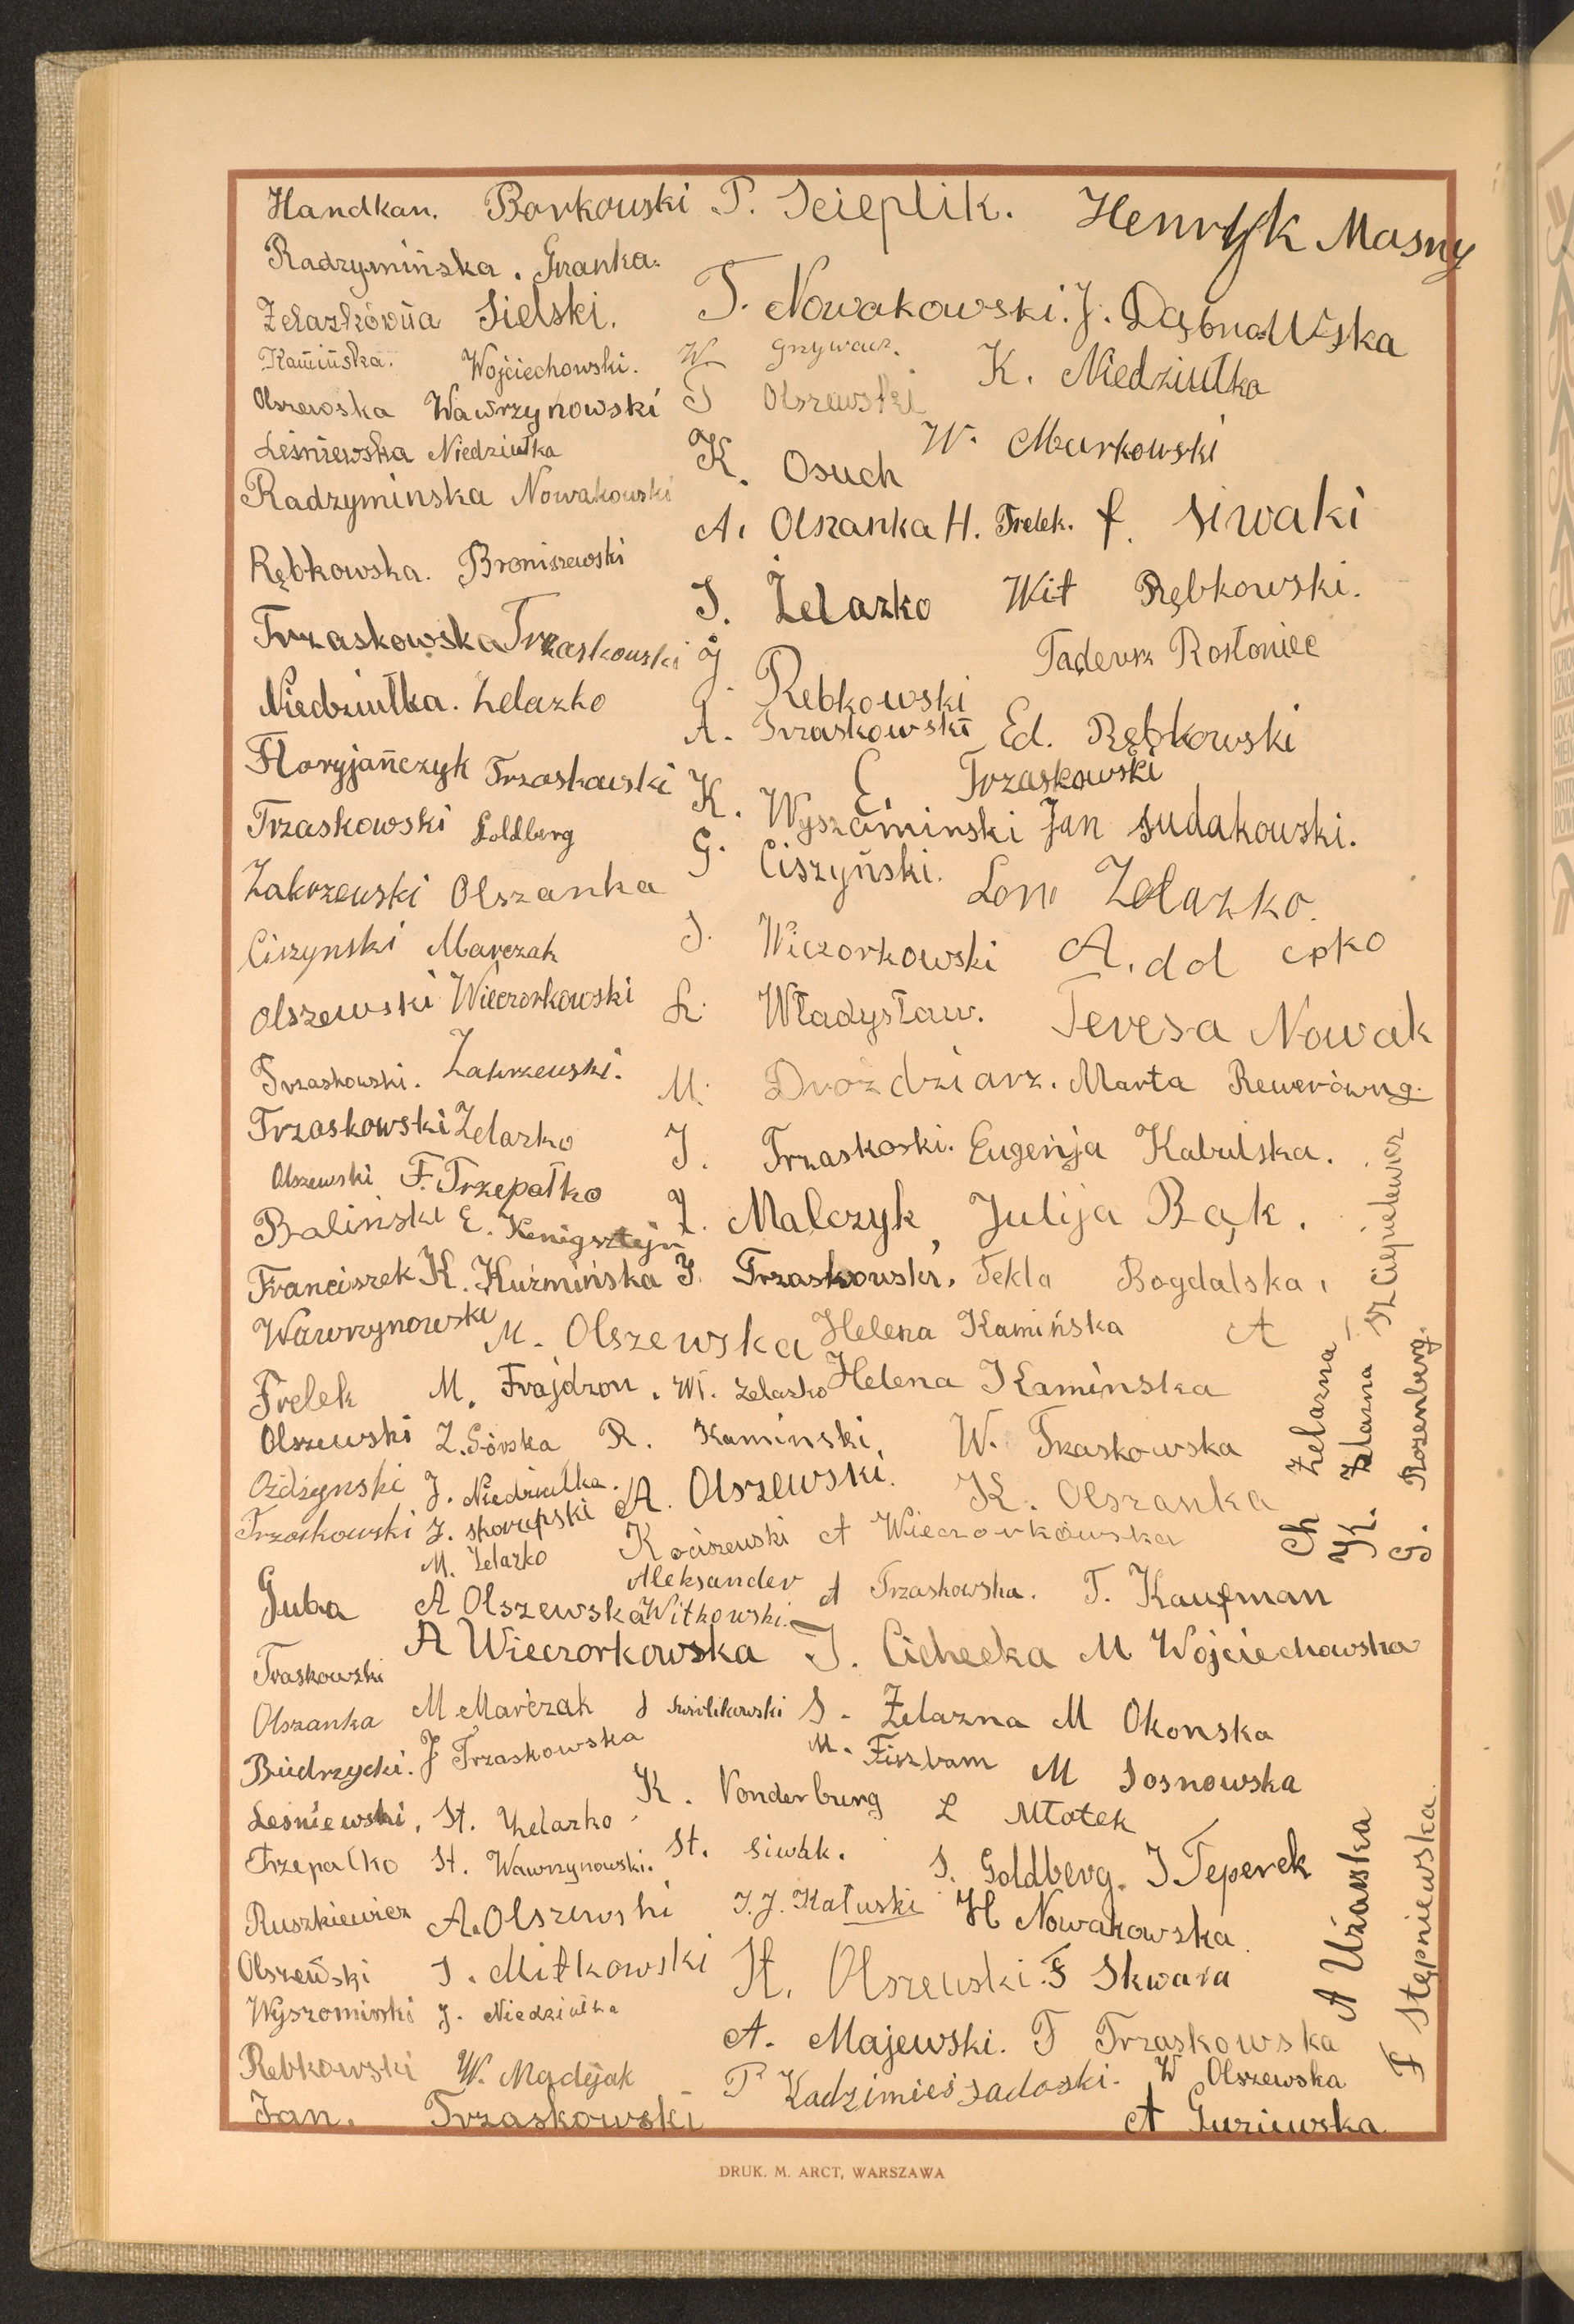 Handkan. Borkowski P. Scieplik. Henryk Masny
Radzymińska. Granka.
Żelazkówna Sielski. T. Nowakowski. J. Dąbrowska
Kamińska. Wojciechowski. W Grzywacz.
K. Niedziułka
Olszewska Wawrzynowski T Olszewski
Leśniewska Niedziułka W. Murkowski
K. Osuch
Radzyminska Nowakowski
A. Olszanka H. Frelek. f. Siwaki
Rębkowska. Broniszewski
J. Żelazko Wit Rębkowski.
Trzaskowska Trzaskowski
J. Rębkowski Tadeusz Rosłoniec
Niedziułka. Żelazko
A. Trzaskowski Ed. Rębkowski
Floryjańczyk Trzaskowski
E. Trzaskowski
K. Wyszominski Jan Sudakowski.
Trzaskowski Goldberg
G. Ciszyński.
Zakrzewski Olszanka Lon Żelazko.
Ciszynski Marczak J. Wiczorkowski A. dol cpko
Olszewski Wieczorkowski Władysław. Teresa Nowak
Trzaskowski. Zakrzewski. M. Droździarz. Marta Rewerówna.
Trzaskowski Żelazko J. Trzaskoski. Eugenja Kabulska.
Olszewski F. Trzepałko
Balinski E. Kenigsztejn J. Malczyk Julija Bąk.
Franciszek K. Kuźmińska J. Trzaskowski. Tekla Bogdalska.
Wawrzynowski M. Olszewska Helena Kamińska A
Frelek M. Frajdzon. Wł. Żelazko Helena Kaminska
Olszewski Z. Górska R. Kaminski, W. Trzaskowska
Ożdżynski J. Niedziułka. A. Olszewski. K. Olszanka
Trzaskowski J. Skorupski Kociszewski A Wieczorkówska
M. Żelazko
Aleksander Witkowski. A Trzaskowska. T. Kaufman
Guba A Olszewska
A Wieczorkowska J. Cichecka M Wojciechowska
Traskowski
Olszanka M Marczak J Królikowski S. Żelazna M Okonska
Budrzycki. J Trzaskowska M. Fiszbam M Sosnowska
K. Vonderburg L Młotek
Leśniewski, St. Żelazko
Trzepałko St. Wawrzynowski. St. Siwak. S. Goldberg. J Teperek
Ruszkiewicz A. Olszewski J. J. Kałuski H Nowakowska.
Olszewski J. Mitkowski St. Olszewski. F Skwara
Wyszominski J. Niedziałka
A. Majewski. T Trzaskowska
Rębkowski W. Madejak P Kadzimieś Sadoski. W Olszewska
Jan. Trzaskowski A Guziewska
Ch Żelazna
K. Żelazna
Sz Ciepielewicz
G. Rozenberg.
A Użarska
F Stępniewska.
DRUK. M. ARCT, WARSZAWA